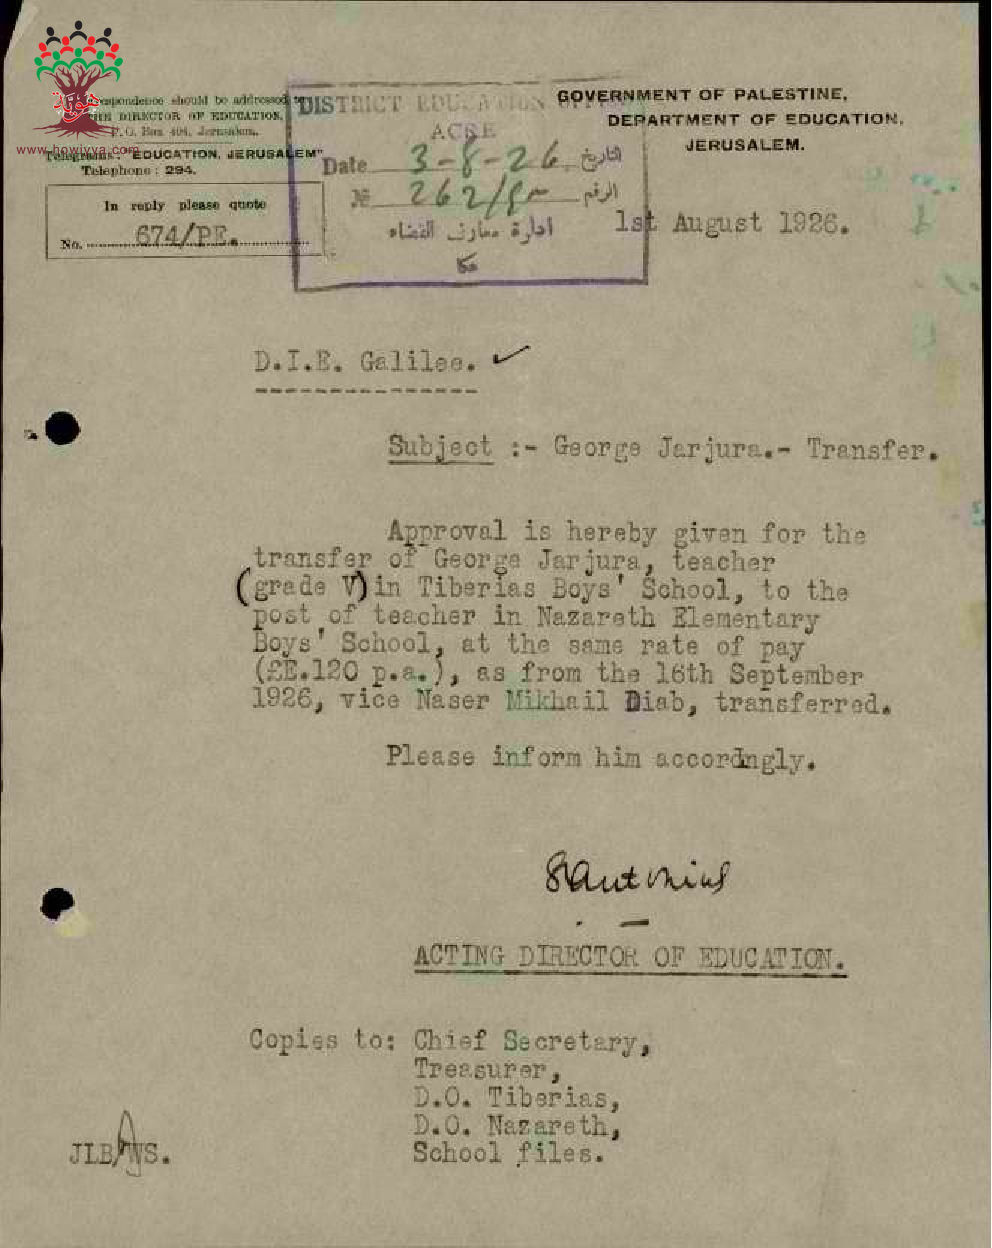 GOVERNMENT OF PALESTINE,
DEPARTMENT OF EDUCATION,
JERUSALEM.
correspondence should be addressed
THE DIRECTOR OF EDUCATION,
P.O. Box 404, Jerusalem.
www.howiyya.com
Telegrams: "EDUCATION, JERUSALEM"
Telephone : 294.
In reply please quote
No. 674/PE.
DISTRICT EDUCATION OFFICE
ACRE
Date 3-8-26 التاريخ
№ 262/ الرقم
ادارة معارف القضاء
عكا
1st August 1926.
D.I.E. Galilee.
Subject :- George Jarjura.- Transfer.
Approval is hereby given for the
transfer of George Jarjura, teacher
(grade V) in Tiberias Boys' School, to the
post of teacher in Nazareth Elementary
Boys' School, at the same rate of pay
(£E.120 p.a.), as from the 16th September
1926, vice Naser Mikhail Diab, transferred.
Please inform him accordngly.
S Antonius
ACTING DIRECTOR OF EDUCATION.
Copies to: Chief Secretary,
Treasurer,
D.O. Tiberias,
D.O. Nazareth,
School files.
JLB/WS.